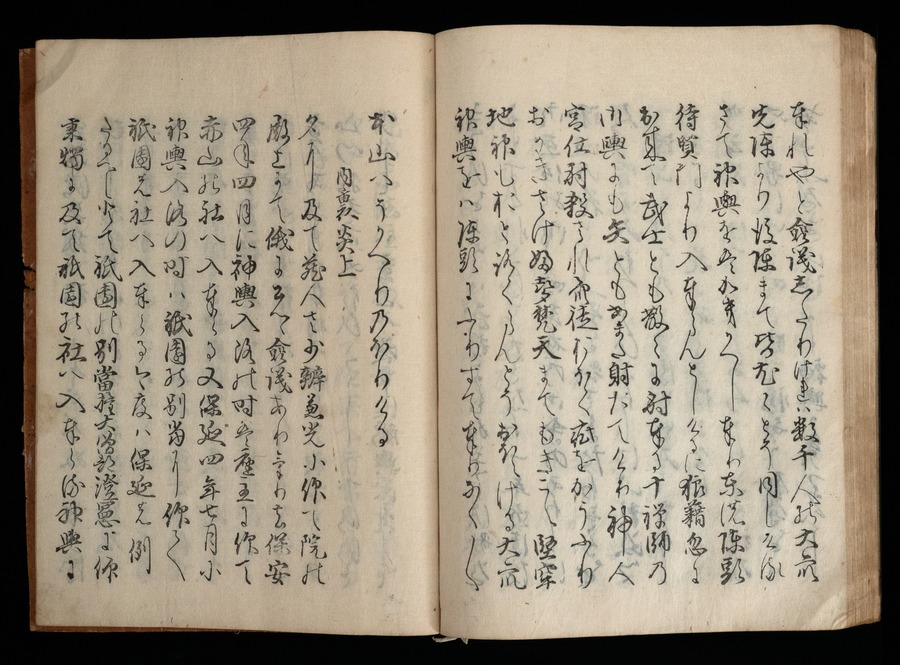 奉れやと僉議したりけれは数千人の大衆
先陣より後陣まて皆尤〳〵とそ同しける
さて神輿をはかきかへし奉り東洗陳頭
待賢門より入奉らんとしけるに狼藉忽に
出来て武士とも散々に射奉る十禅師の
御輿にも矢ともあまた射たてけり神人
宮仕射殺され衆徒おほく疵をかうふり
おめきさけふ声梵天まてもきこえ堅牢
地神もおとろくらんとそおほえける大衆
神輿をは陣頭にふりすて奉りなく〳〵
本山へそかへりのほりける
内裏炎上
夕にに及て蔵人左少弁兼光に仰て院の
殿上にて俄に公卿僉議あり去る保安
四年四月に神輿入洛の時は座主に仰て
赤山の社へ入奉る又保延四年七月に
神輿入洛の時は祇園の別当に仰て
祇園の社へ入奉らる今度は保延の例
たるへしとて祇園の別當権大僧都澄憲に仰
秉燭に及て祇園の社へ入奉る神輿に